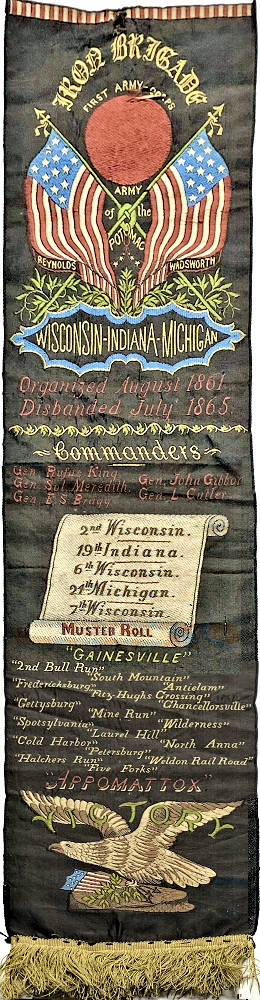 IRON BRIGADE
FIRST ARMY-CORPS
ARMY
of the
POTOMAC
REYNOLDS WADSWORTH
WISCONSIN-INDIANA-MICHIGAN
Organized August 1861.
Disbanded July 1865.
Commanders
Gen. Rufus King. Gen. John Gibbon
Gen. Sol. Meredith. Gen. L. Cutler.
Gen. E. S. Bragg.
2nd Wisconsin.
19th Indiana.
6th Wisconsin.
24th Michigan.
7th Wisconsin.
MUSTER ROLL
"GAINESVILLE"
"2nd Bull Run" "South Mountain"
"Fredericksburg" "Antietam"
"Fitz-Hughs Crossing"
"Gettysburg" "Chancellorsville"
"Mine Run"
"Spotsylvania" "Wilderness"
"Laurel Hill"
"Cold Harbor" "North Anna"
"Petersburg"
"Hatchers Run" "Weldon Rail Road"
"Five Forks"
"APPOMATTOX"
VICTORY